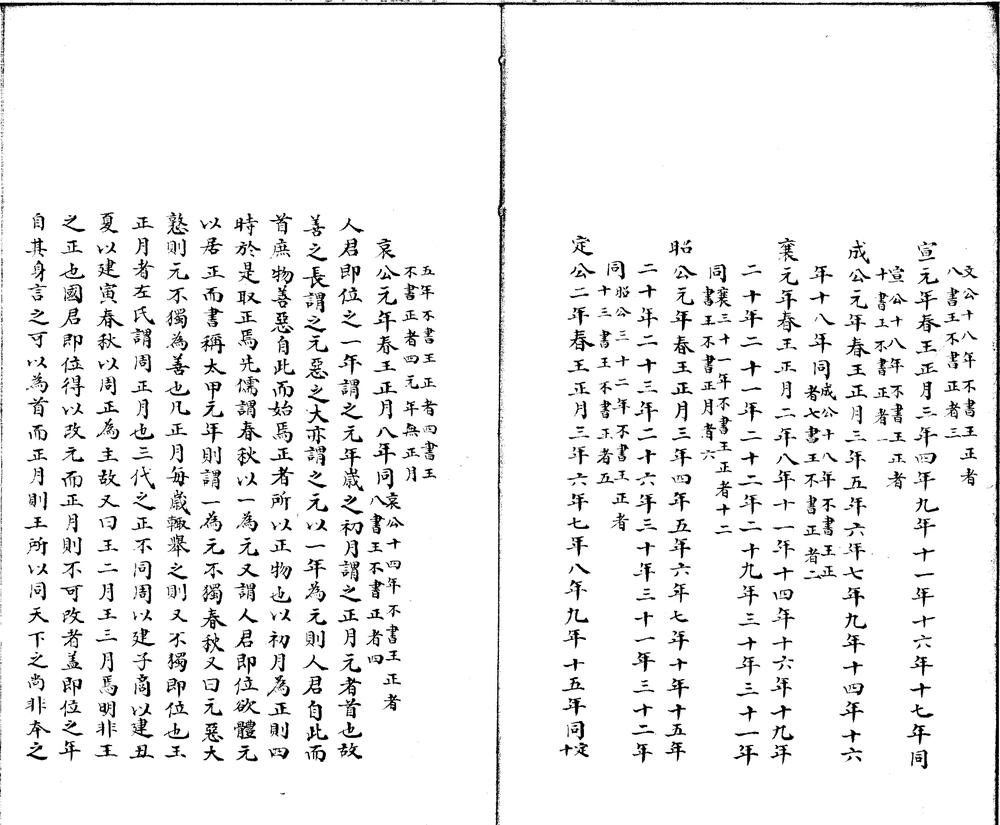 文公十八年不書王正者
八書王不書正者三
宣元年春王正月三年四年九年十一年十六年十七年同
宣公十八年不書王正者
十書王不書正者一
成公元年春王正月三年五年六年七年九年十四年十六
年十八年同成公十八年不書王正
者七書王不書正者二
襄元年春王正月二年八年十一年十四年十六年十九年
二十年二十一年二十二年二十九年三十年三十一年
同襄三十一年不書王正者十二
書王不書正月者六
昭公元年春王正月三年四年五年六年七年十年十五年
二十年二十三年二十六年三十年三十一年三十二年
同昭公三十二年不書王正者
十三書王不書正者五
定公二年春王正月三年六年七年八年九年十五年同定
十
五年不書王正者四書王
不書正者四元年無正月
哀公元年春王正月八年同哀公十四年不書王正者
八書王不書正者四
人君即位之一年謂之元年歲之初月謂之正月元者首也故
善之長謂之元惡之大亦謂之元以一年為元則人君自此而
首庶物善惡自此而始焉正者所以正物也以初月為正則四
時於是取正焉先儒謂春秋以一為元又謂人君即位欲體元
以居正而書稱太甲元年則謂一為元不獨春秋又曰元惡大
憝則元不獨為善也凡正月每歲輒舉之則又不獨即位也王
正月者左氏謂周正月也三代之正不同周以建子商以建丑
夏以建寅春秋以周正為主故又曰王二月王三月焉明非王
之正也國君即位得以改元而正月則不可改者蓋即位之年
自其身言之可以為首而正月則王所以同天下之尚非本之